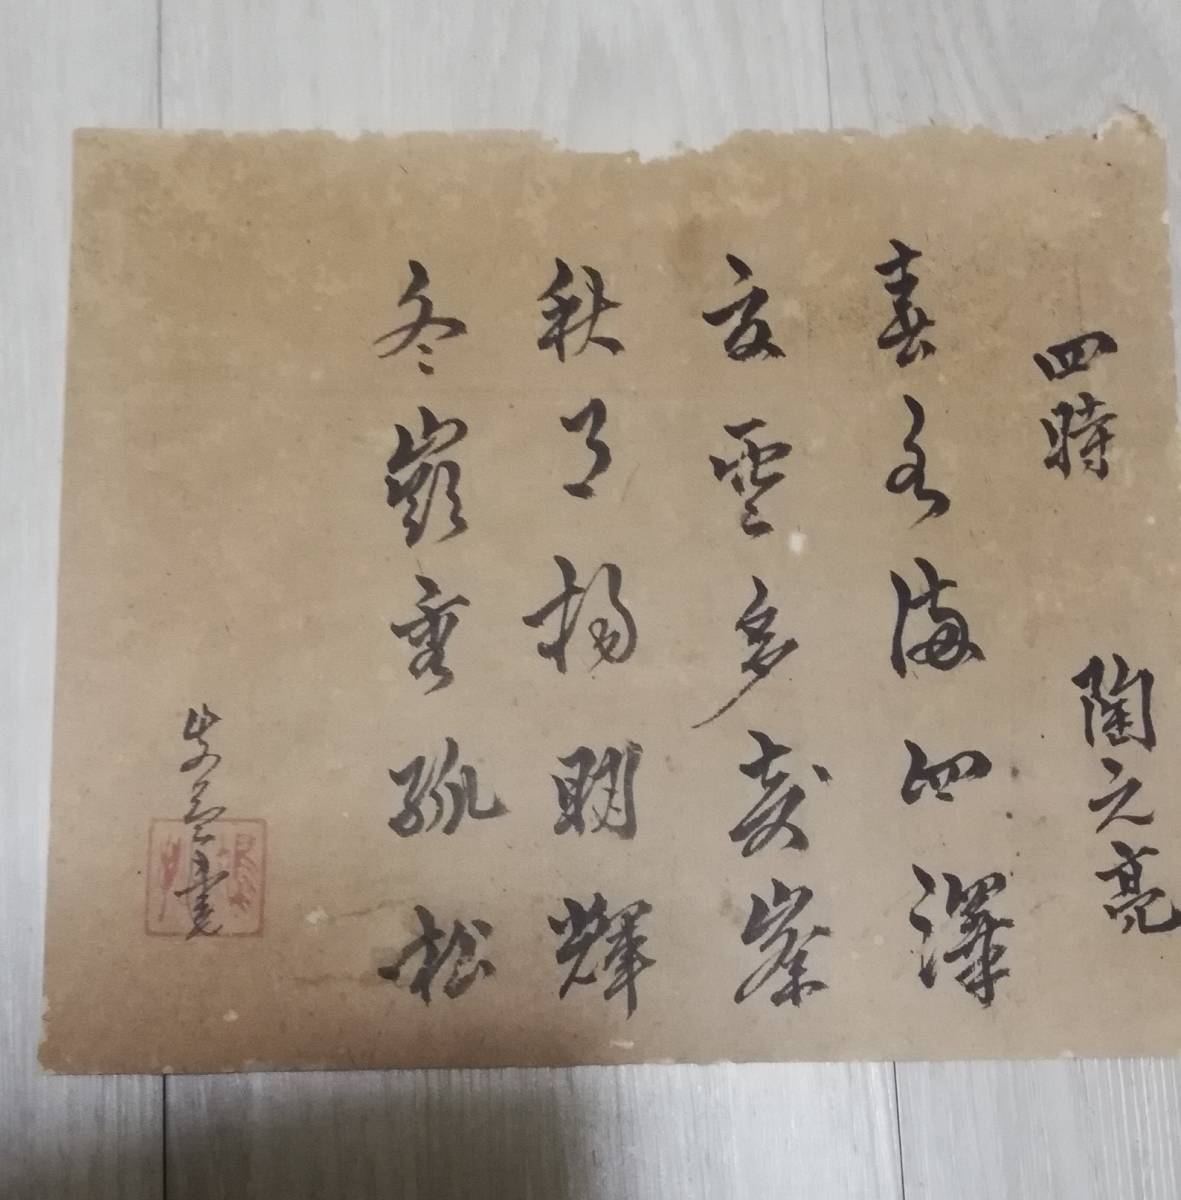 四時 陶元亮
春水滿四澤
夏雲多奇峯
秋月揚明輝
冬嶺秀孤松